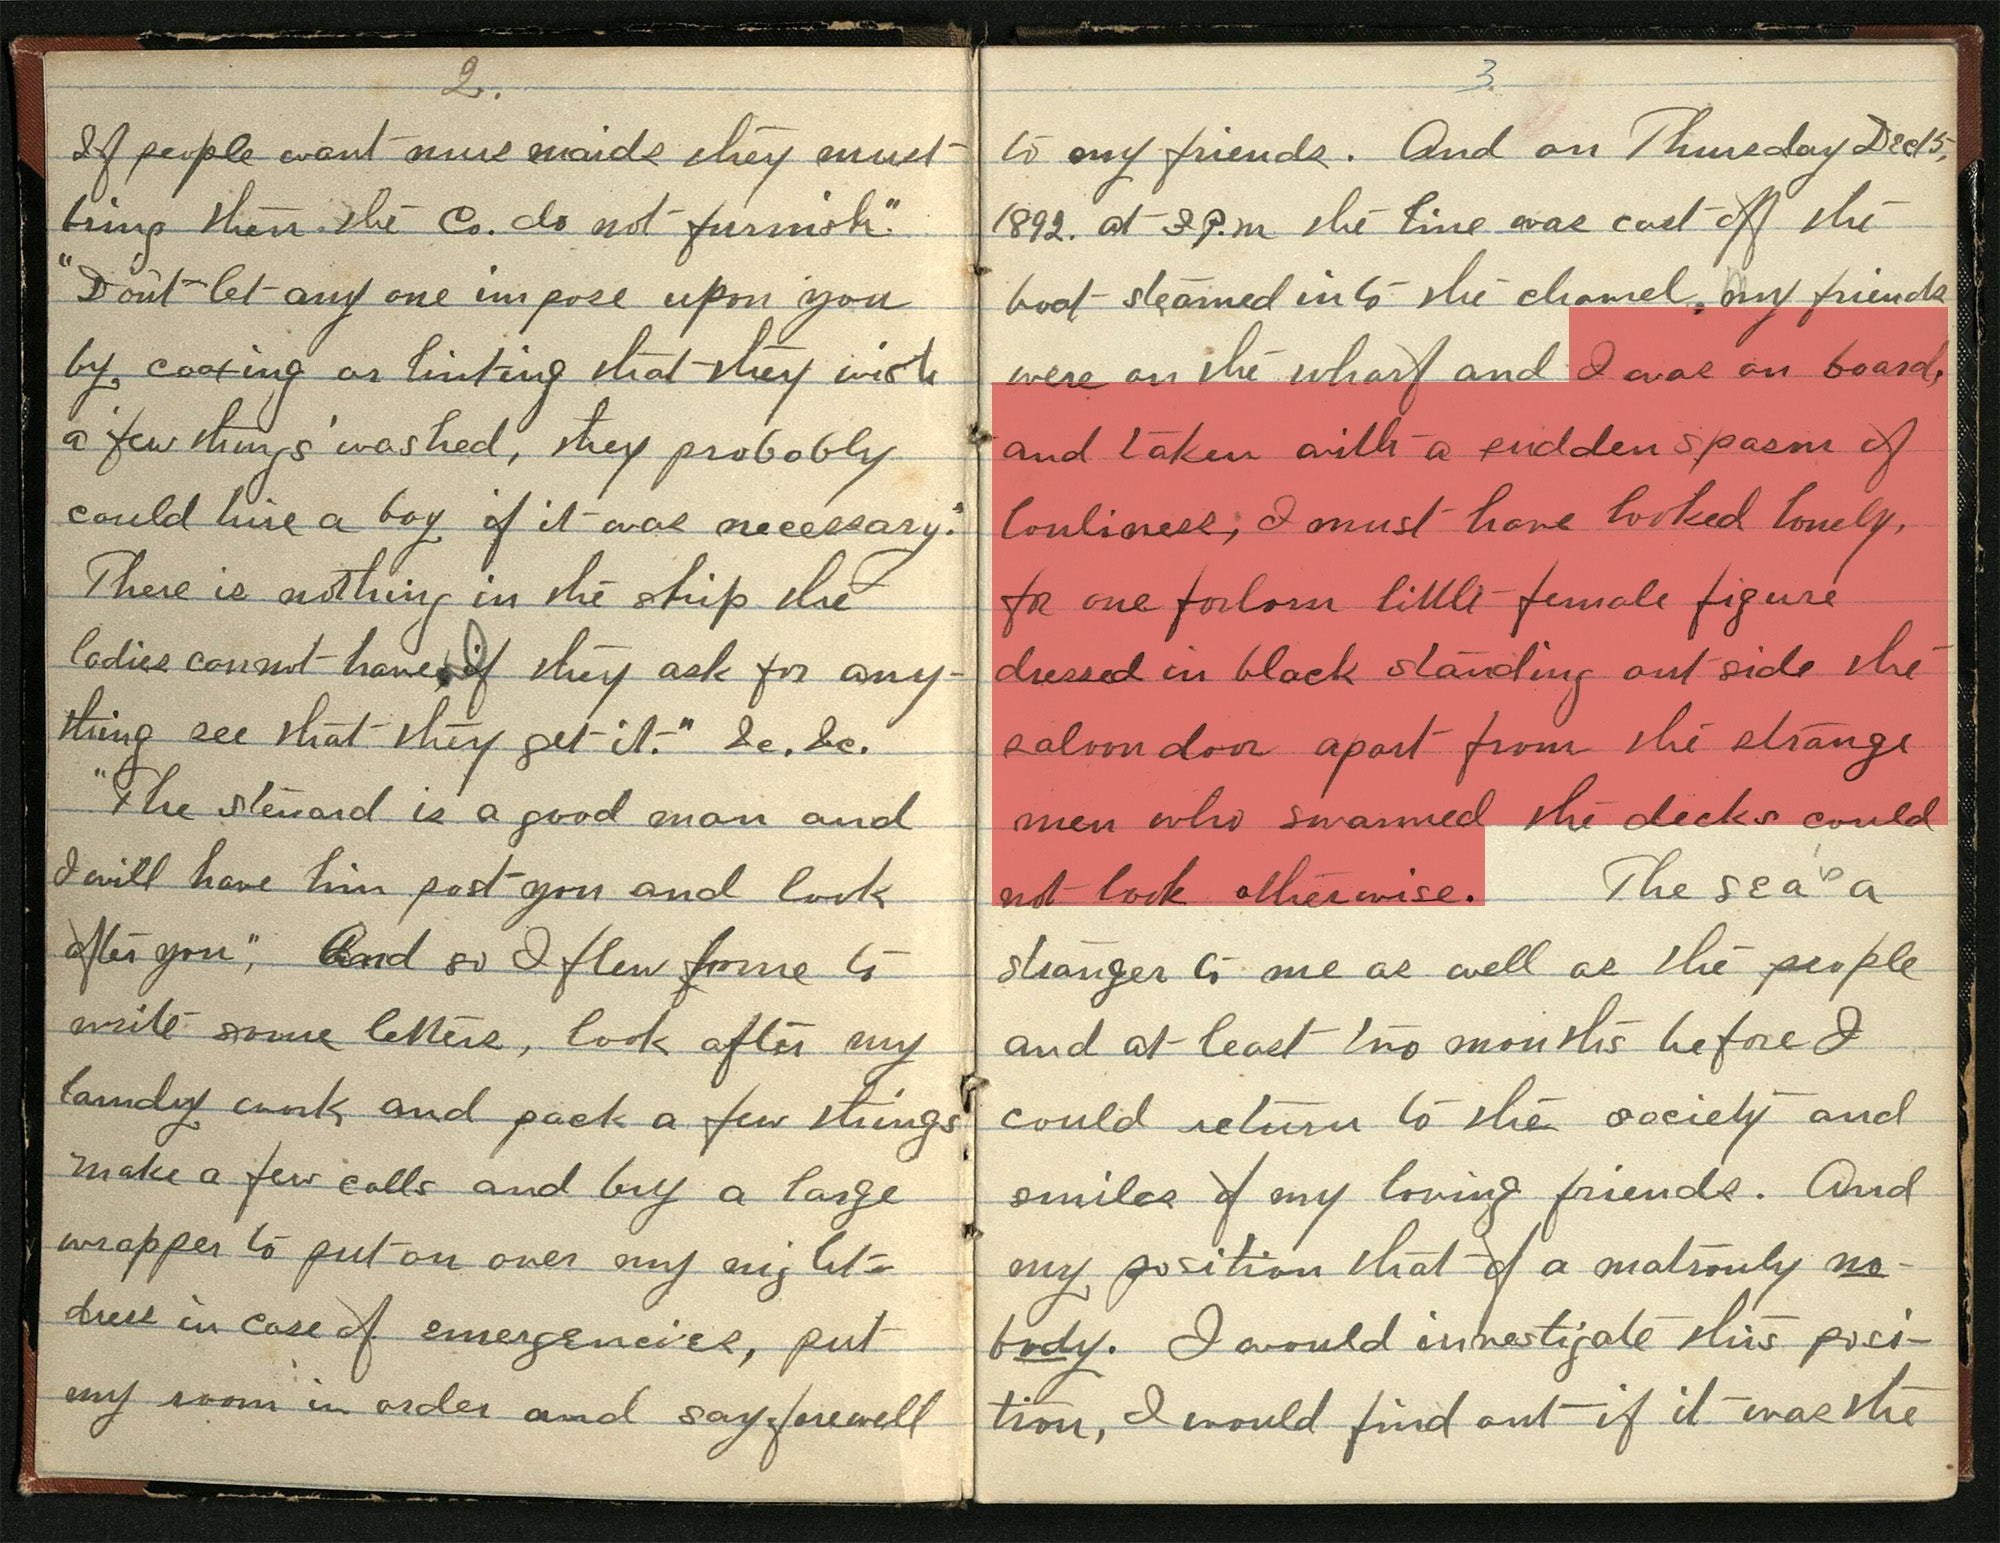 2.
If people want nurse maids they must
bring them the Co. do not furnish."
"Dont let any one impose upon you
by coaxing or hinting that they wish
a 'few things' washed, they probably
could hire a boy if it was necessary."
There is nothing in the ship the
ladies cannot have, if they ask for any-
thing see that they get it." &c. &c.
"The steward is a good man and
I will have him post you and look
after you", And so I flew home to
write some letters, look after my
laundry work and pack a few things
make a few calls and buy a large
wrapper to put on over my night-
dress in case of emergencies, put
my room in order and say farewell
3.
to my friends. And on Thursday Dec 15,
1892. at 2 P.m the line was cast off the
boat steamed into the channel. my friends
were on the wharf and I was on board,
and taken with a sudden spasm of
lonliness, I must have looked lonely,
for one forlorn little female figure
dressed in black standing out side the
saloon door apart from the strange
men who swarmed the decks could
not look otherwise. The sea is a
stranger to me as well as the people
and at least two months before I
could return to the society and
smiles of my loving friends. And
my position that of a matronly no-
body. I would investigate this posi-
tion, I would find out if it was the